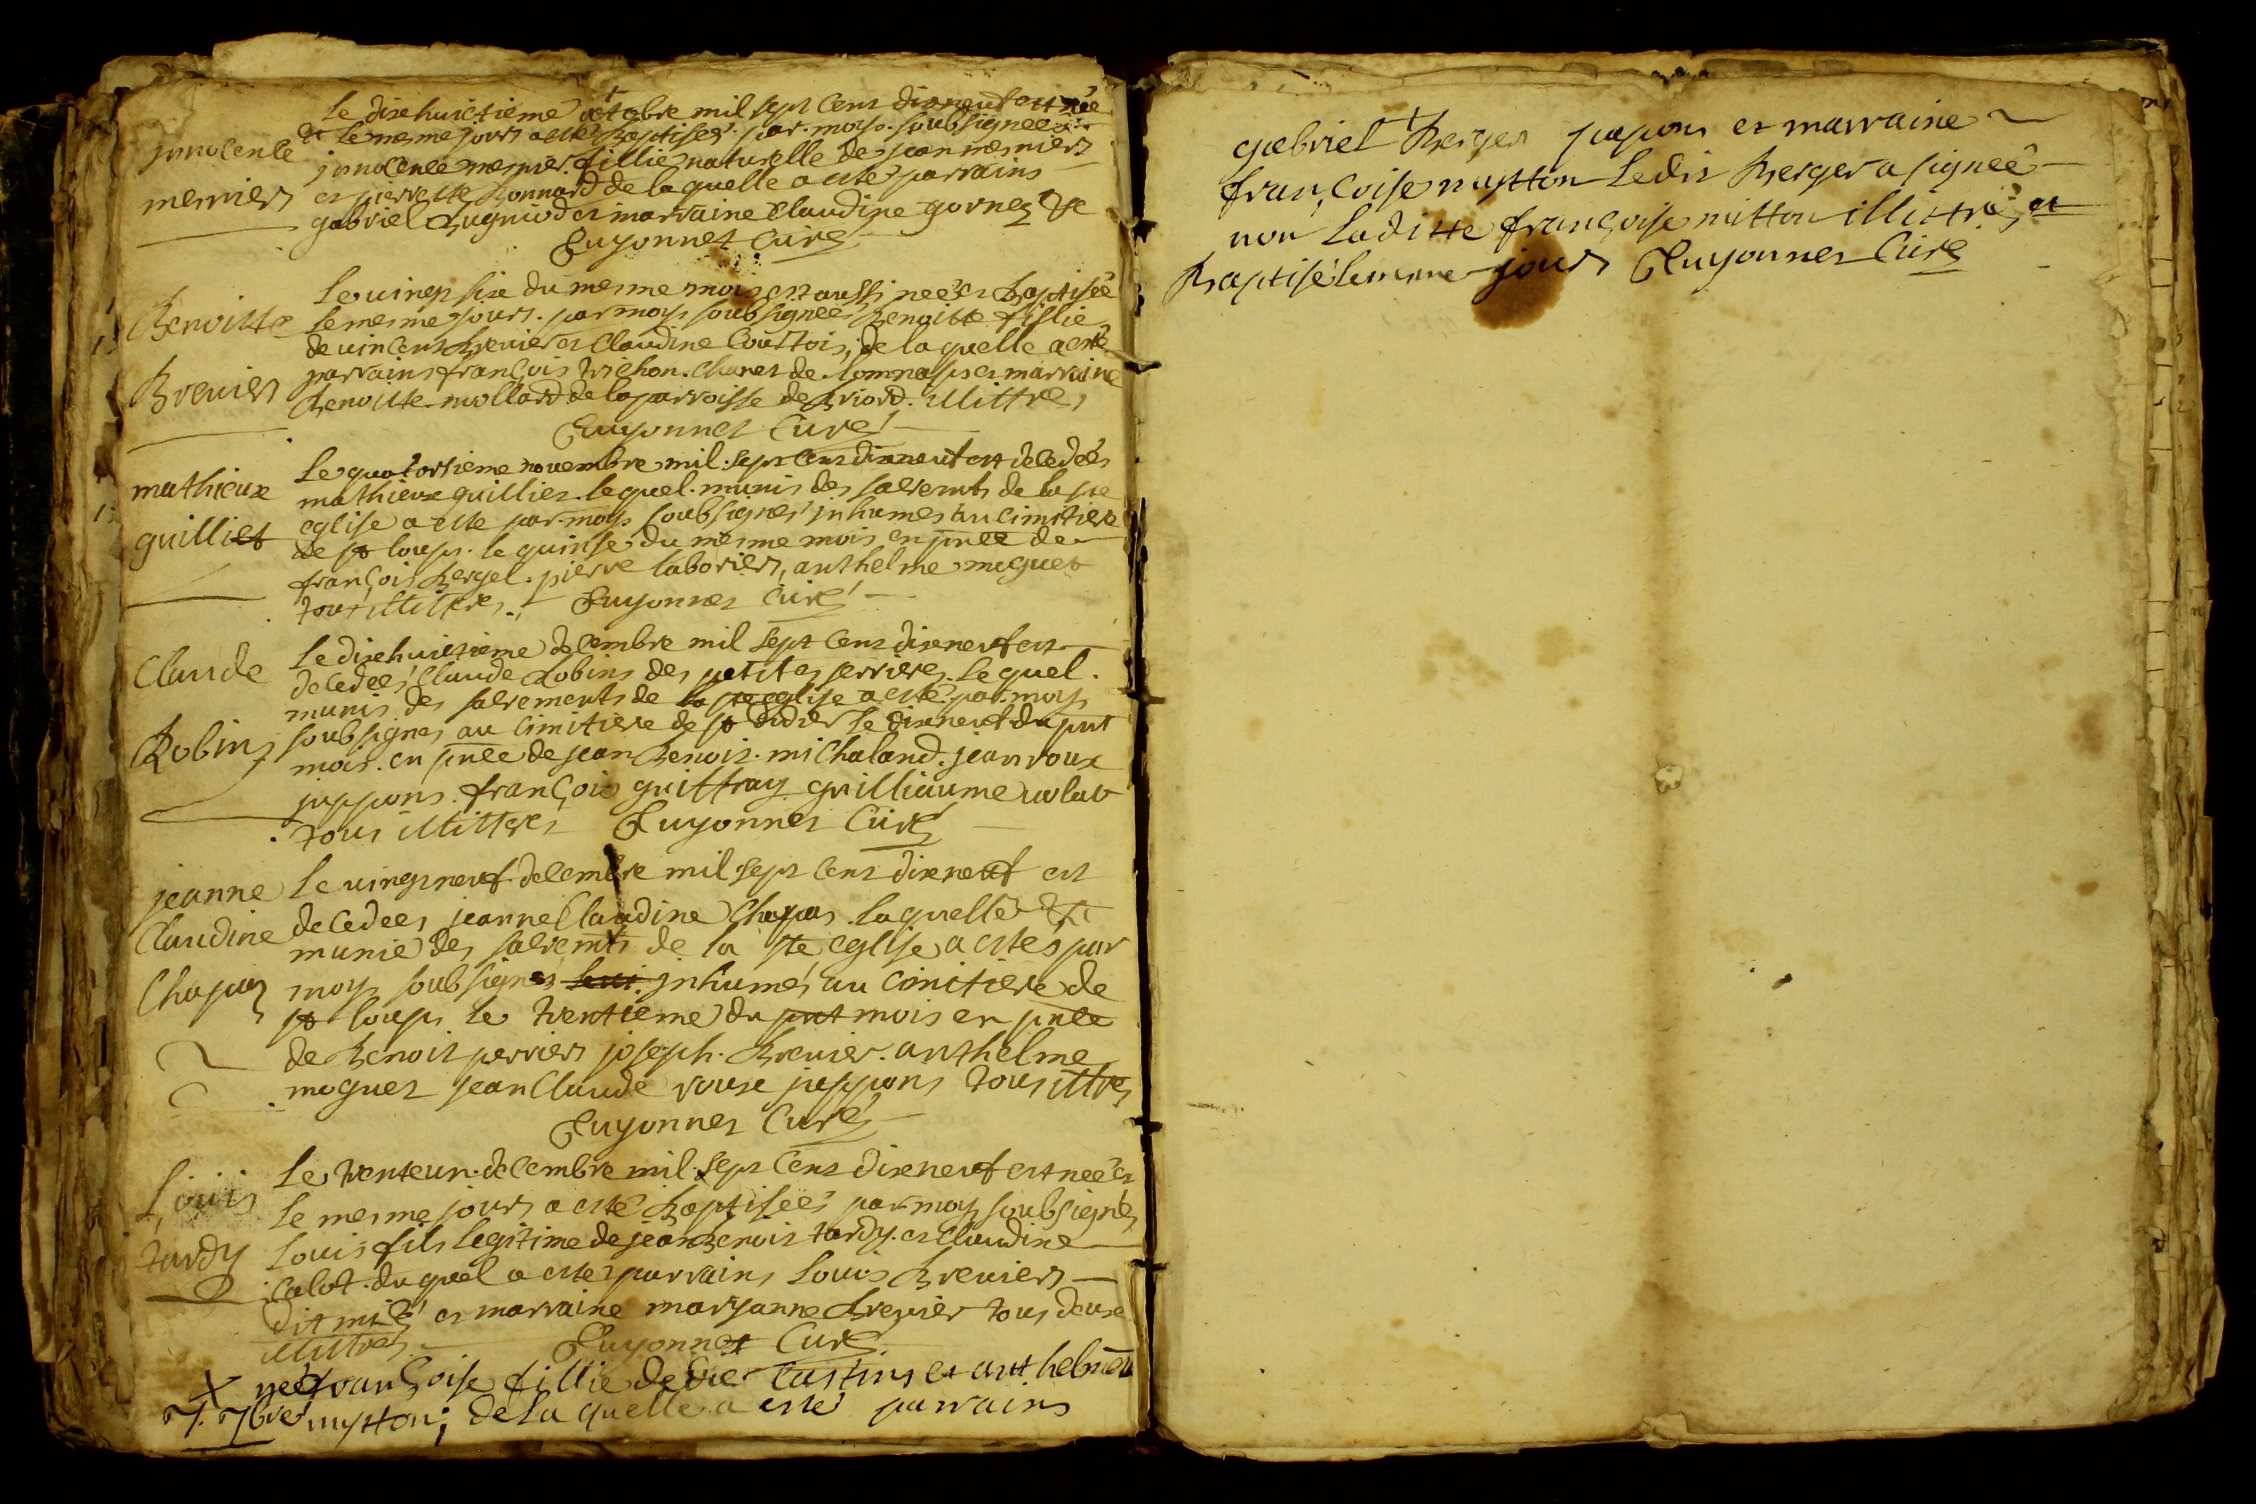 Le dixe huictieme octobre mil sept cens dixneuf est née
innocente & le mesme jours a esté Baptiseé par moys soubsigneé
innocente mesnier fillie naturelle de jean mesniers
mesniers et pierrette Bonnard de laquelle a esté parrains
gabriel Bugniod et marraine Claudine gornez
Guyonnet Curé
Le uingt sixe du mesme mois est aussi neéé et Baptiseé
Benoitte le mesme jours par moys soubsigneé Benoitte fillie
de uincent Breuier et Claudine Courtois, de laquelle a esté
parrains françois trichon de lomnas et marraine
Breuiers Benoitte mollard de la parroisse de Briord. illittres
Guyonnet Curé
Le quatorsieme nouembre mil sept cens dixneuf est decedés
mathieux mathieux guillier lequel munis des sacremts de la ste
eglise a esté par moys soubsignés inhumés au cimitiere
guilliet de st loups le quinse du mesme mois en pnce de
françois Bergel pierre laboriers, anthelme moguet
tous illittres Guyonnet Curé
Le dixe huictieme decembre mil sept cens dixneuf est
Claude decedeé Claude Robins des petites serrieres lequel
munis des sacrements de la ste eglise a esté par moys
soubsignés au cimitiere de st didier le dixneuf du pnt
Robins mois en pnce de jean Benoit michaland jean roux
juppons françois guiffray guilliaume
tous illittres Guyonnet Curé
jeanne Le uingt neuf decembre mil sept cens dixneuf est
Claudine decedees jeanne Claudine Chapas laquelle
munie des sacremts de la ste eglise a estés par
Chapuy moys soubsignés inhumés au cimitiere de
st loups le trentieme du pnt mois en pnce
de Benoit perriers joseph Breuier anthelme
moguet jean Claude roux juppons tous illtres
Guyonnet Curé
Le trenteun decembre mil sept cens dixneuf est neé et
Louis le mesme jours a esté Baptiseé par moys soubsignés
tardy Louis fils legitime de jean Benoit tardy et Claudine
Calot duquel a esté parrains Louis Breuiers
dit mité et marraine maryanne Breuier tous deux
illittres Guyonnet Curé
X neé françoise fillie de Castins et anthelmea
7. 7bre mytton; de laquelle a esté parrains
gabriel Berger papons et marraine
françoise mytton Ledit Berger a signeé
non laditte françoise mitton illittré, et
Baptisé le mesme jours Guyonnet Curé